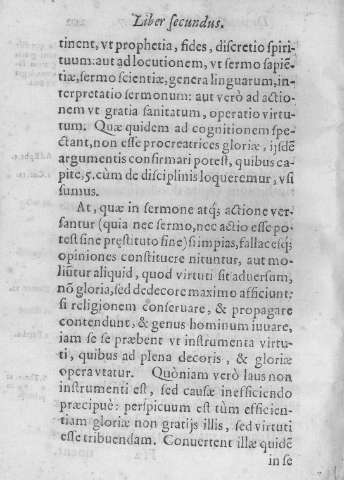 Liber secundus.
tinent, vt prophetia, fides, discretio spiri-
tuum: aut ad locutionem, vt sermo sapiē-
tiæ, sermo scientiæ, genera linguarum, in-
terpretatio sermonum: aut verò ad actio-
nem vt gratia sanitatum, operatio virtu-
tum. Quæ quidem ad cognitionem spe-
ctant, non esse procreatrices gloriæ, ijsdē
argumentis confirmari potest, quibus ca-
pite, 5. cùm de disciplinis loqueremur, vsi
sumus.
At, quæ in sermone atq; actione ver-
santur (quia nec sermo, nec actio esse po-
test sine pręstituto fine) si impias, fallaceśq;
opiniones constituere nituntur, aut mo-
liūtur aliquid, quod virtuti sit aduersum,
nō gloria, sed dedecore maximo afficiunt:
si religionem conseruare, & propagare
contendunt, & genus hominum iuuare,
iam se se præbent vt instrumenta virtu-
ti, quibus ad plena decoris, & gloriæ
opera vtatur. Quòniam verò laus non
instrumenti est, sed causæ inefficiendo
præcipuè: perspicuum est tùm efficien-
tiam gloriæ non gratijs illis, sed virtuti
esse tribuendam. Conuertent illæ quidē
in se